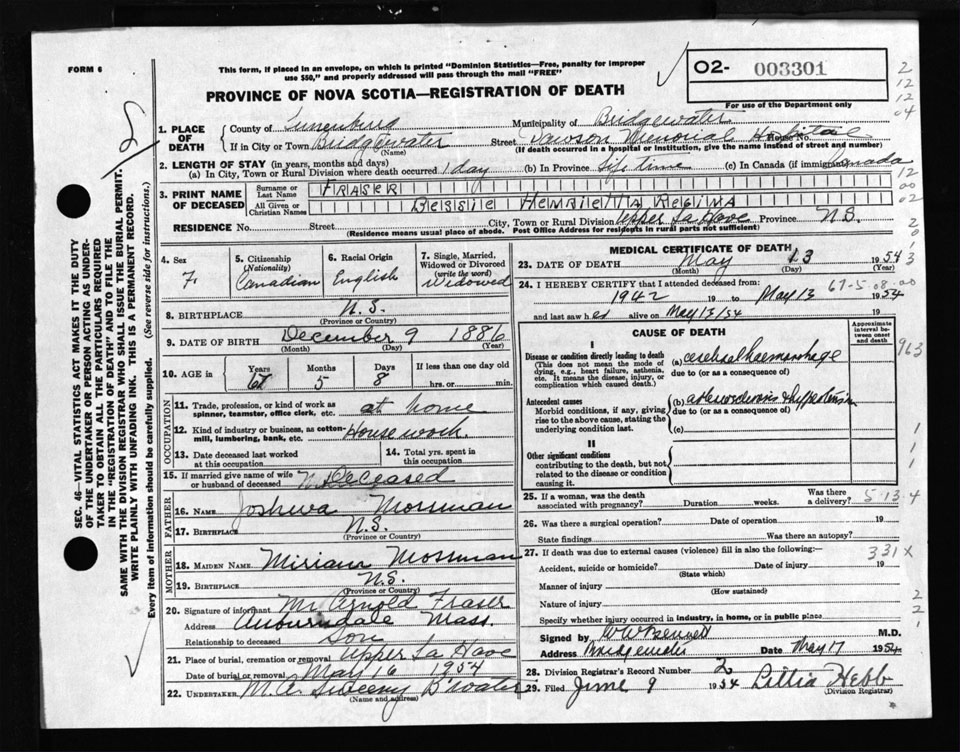 FORM 6
This form, if placed in an envelope, on which is printed "Dominion Statistics—Free, penalty for improper
use $50," and properly addressed will pass through the mail "FREE"
PROVINCE OF NOVA SCOTIA—REGISTRATION OF DEATH
O2- 003301
For use of the Department only
2
12
12
04
1. PLACE OF DEATH
County of Lunenburg Municipality of Bridgewater
If in City or Town Bridgewater Street Dawson Memorial Hospital House No.
(Name) (If death occurred in a hospital or institution, give the name instead of street and number)
2. LENGTH OF STAY (in years, months and days)
(a) In City, Town or Rural Division where death occurred 1 day (b) In Province Life time (c) In Canada (if immigrant) Canada
12
00
02
3. PRINT NAME OF DECEASED
Surname or Last Name FRASER
All Given or Christian Names BESSIE HENRIETTA REGINA
RESIDENCE No. Street City, Town or Rural Division Upper La Have Province N.S.
(Residence means usual place of abode. Post Office Address for residents in rural parts not sufficient)
4. Sex
F
5. Citizenship (Nationality)
Canadian
6. Racial Origin
English
7. Single, Married, Widowed or Divorced (write the word)
Widowed
8. BIRTHPLACE N.S.
(Province or Country)
9. DATE OF BIRTH December 9 1886
(Month) (Day) (Year)
10. AGE in
Years 67 Months 5 Days 8 If less than one day old
hrs. or min.
OCCUPATION
11. Trade, profession, or kind of work as spinner, teamster, office clerk, etc. at home
12. Kind of industry or business, as cotton-mill, lumbering, bank, etc. House work.
13. Date deceased last worked at this occupation
14. Total yrs. spent in this occupation
15. If married give name of wife or husband of deceased Deceased
FATHER
16. NAME Joshua Mossman
17. BIRTHPLACE N.S.
(Province or Country)
MOTHER
18. MAIDEN NAME Miriam Mossman
19. BIRTHPLACE N.S.
(Province or Country)
20. Signature of informant Mr Arnold Fraser
Address Auburndale Mass.
Relationship to deceased Son
21. Place of burial, cremation or removal Upper La Have
Date of burial or removal May 16 1954
22. UNDERTAKER M.A. Sweeny B'water
(Name and address)
MEDICAL CERTIFICATE OF DEATH
23. DATE OF DEATH May 13 1954
(Month) (Day) (Year)
24. I HEREBY CERTIFY that I attended deceased from: 67-5-08-00
1942 19 to May 13 1954
and last saw her alive on May 13/54 19
CAUSE OF DEATH
Approximate interval between onset and death
I
Disease or condition directly leading to death
(This does not mean the mode of dying, e.g., heart failure, asthenia, etc. It means the disease, injury, or complication which caused death.)
(a) cerebral haemorrhage
due to (or as a consequence of)
963
Antecedent causes
Morbid conditions, if any, giving rise to the above cause, stating the underlying condition last.
(b) arteriosclerosis & hypertension
due to (or as a consequence of)
(c)
II
Other significant conditions
contributing to the death, but not related to the disease or condition causing it.
1
1
1
25. If a woman, was the death associated with pregnancy? Duration weeks. Was there a delivery? 5-13-4
26. Was there a surgical operation? Date of operation 19
State findings Was there an autopsy?
27. If death was due to external causes (violence) fill in also the following:— 331X
Accident, suicide or homicide? Date of injury 19
(State which)
Manner of injury
(How sustained)
Nature of injury
Specify whether injury occurred in industry, in home, or in public place
Signed by W W Bennett M.D.
Address Bridgewater Date May 17 1954
28. Division Registrar's Record Number 2
29. Filed June 9 1954 Lottia Hebb
(Division Registrar)
SEC. 46—VITAL STATISTICS ACT MAKES IT THE DUTY
OF THE UNDERTAKER OR PERSON ACTING AS UNDER-
TAKER TO OBTAIN ALL THE PARTICULARS REQUIRED
IN THE "REGISTRATION OF DEATH" AND TO FILE THE
SAME WITH THE DIVISION REGISTRAR WHO SHALL ISSUE THE BURIAL PERMIT.
WRITE PLAINLY WITH UNFADING INK. THIS IS A PERMANENT RECORD.
Every item of information should be carefully supplied. (See reverse side for instructions.)